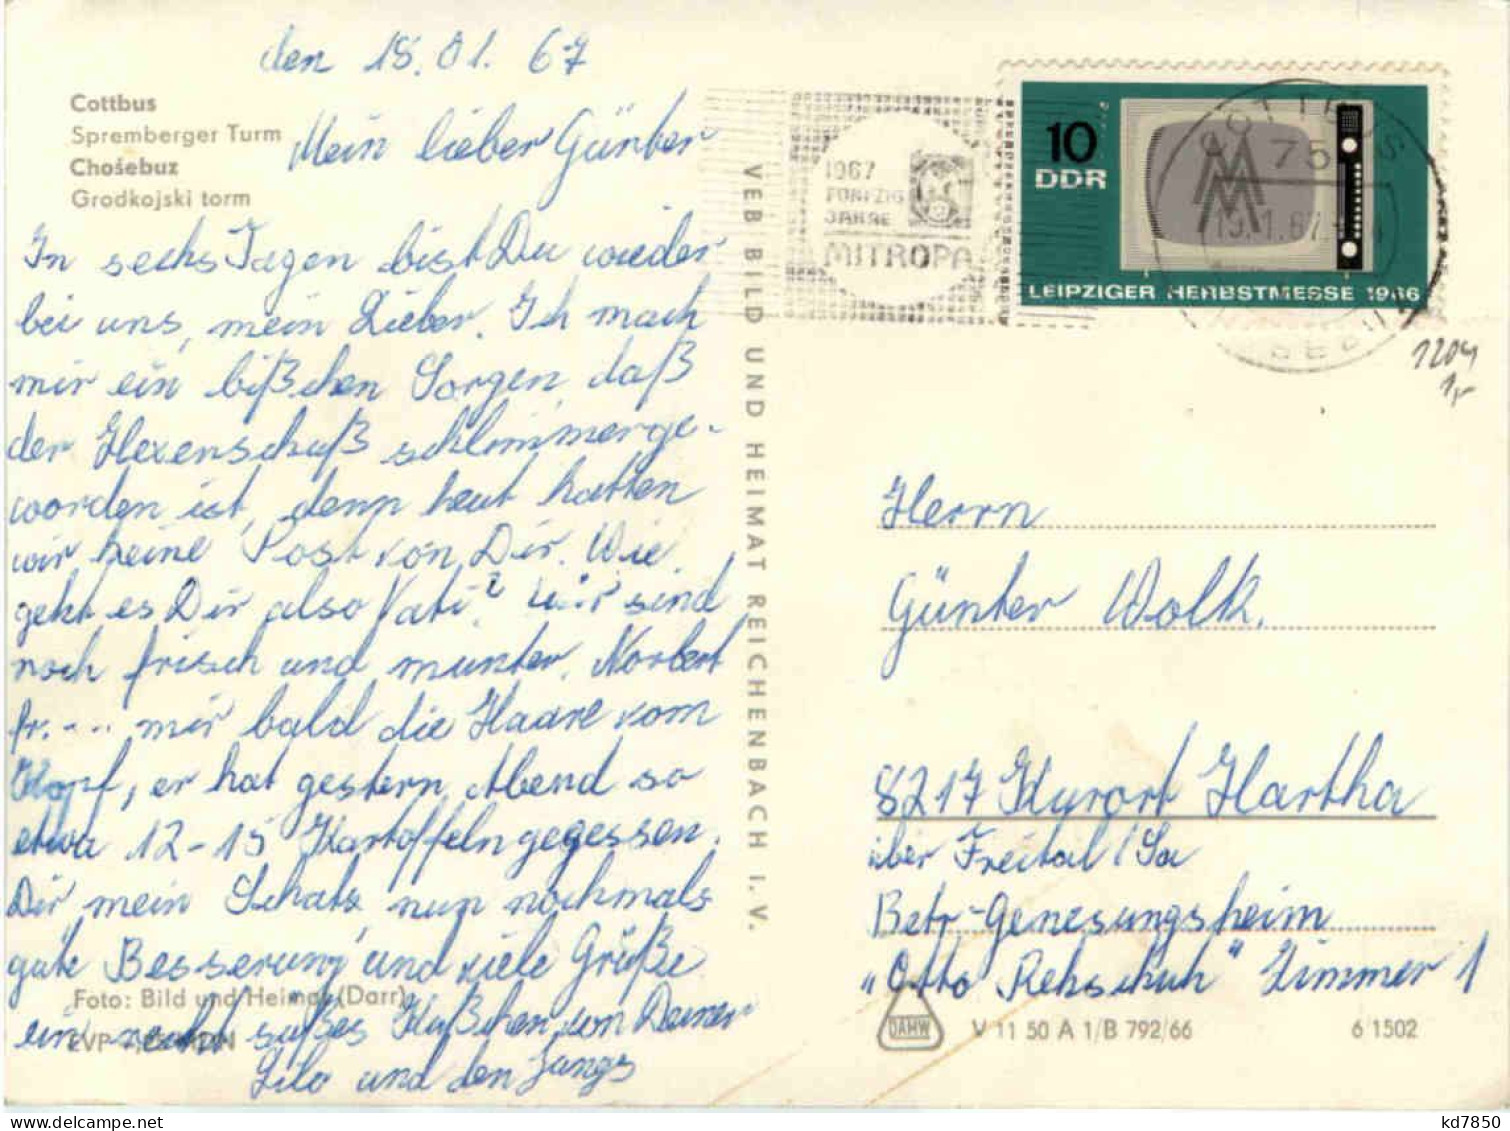 den 18.01.67
Cottbus
Spremberger Turm
Chośebuz
Grodkojski torm
Mein lieber Günter
In sechs Tagen bist Du wieder
bei uns, mein Lieber. Ich mach
mir ein bißchen Sorgen, daß
der Hexenschuß schlimmerge-
worden ist, denn heut hatten
wir keine Post von Dir. Wie
geht es Dir also Vati? Wir sind
noch frisch und munter. Norbert
fr.... mir bald die Haare vom
Kopf, er hat gestern Abend so
etwa 12-15 Kartoffeln gegessen.
Dir mein Schatz, nun nochmals
gute Besserung und viele Grüße
Foto: Bild und Heimat (Darr)
ein recht süßes Küßchen von Deiner
EVP MDN
Lilo und den Jungs
VEB BILD UND HEIMAT REICHENBACH I. V.
1967
FÜNFZIG
JAHRE
MITROPA
10
DDR
MM
LEIPZIGER HERBSTMESSE 1966
COTTBUS
75
19.1.67
1204
Herrn
Günter Wolk.
8217 Kurort Hartha
über Freital/Sa
Betr-Genesungsheim
„Otto Rehschuh" Zimmer 1
DAHW
V 11 50 A 1/B 792/66
6/1502
kd7850